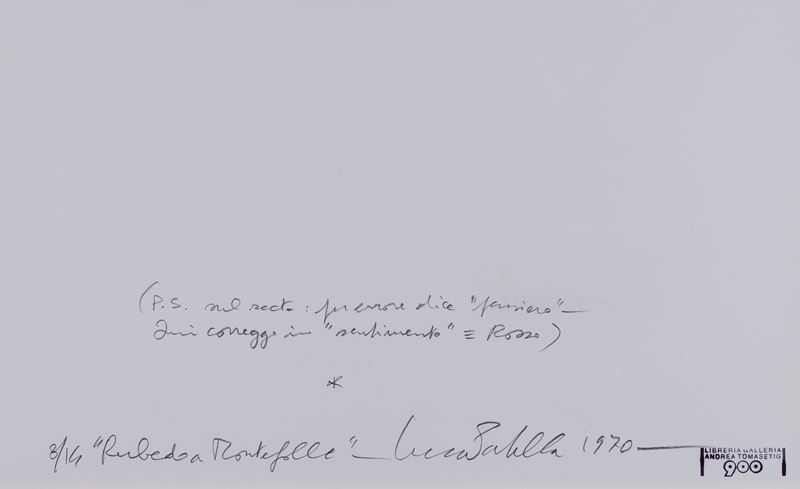 (P.S. sul recto: per errore dice "pensiero" —
Qui correggo in "sentimento" ≡ Rosso)
*
3/14 "Rubedo a Montefolle" — Luca Patella 1970
LIBRERIA GALLERIA
ANDREA TOMASETIG
900